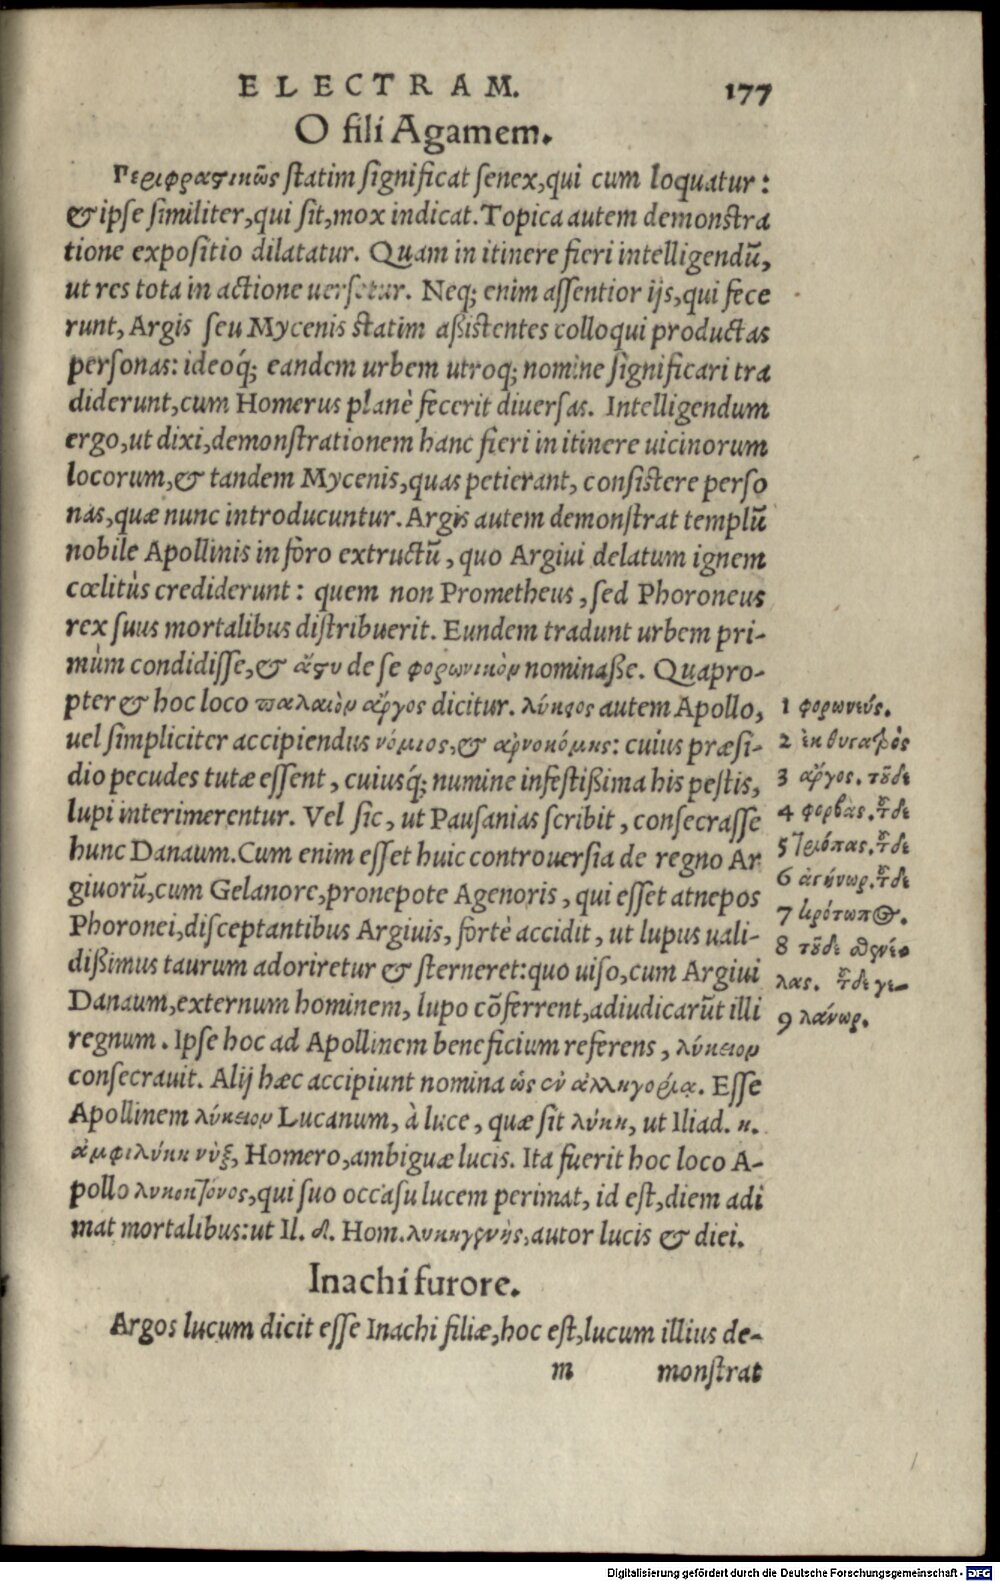 ELECTRAM. 177
O fili Agamem.
Περιφραστικῶς ſtatim ſignificat ſenex,qui cum loquatur:
& ipſe ſimiliter,qui ſit,mox indicat. Topica autem demonſtra
tione expoſitio dilatatur. Quam in itinere fieri intelligendũ,
ut res tota in actione uerſetur. Neq; enim aſſentior ijs,qui fece
runt, Argis ſeu Mycenis ſtatim aßiſtentes colloqui productas
perſonas: ideoq́; eandem urbem utroq; nomine ſignificari tra
diderunt,cum Homerus planè fecerit diuerſas. Intelligendum
ergo,ut dixi,demonſtrationem hanc fieri in itinere uicinorum
locorum,& tandem Mycenis,quas petierant, conſiſtere perſo
nas,quæ nunc introducuntur. Argis autem demonſtrat templũ
nobile Apollinis in foro extructũ, quo Argiui delatum ignem
cœlitùs crediderunt: quem non Prometheus, ſed Phoroneus
rex ſuus mortalibus diſtribuerit. Eundem tradunt urbem pri-
mùm condidiſſe,& ἄστυ de ſe φορωνικὸν nominaße. Quapro-
pter & hoc loco παλαιὸν ἄργος dicitur. λύκιος autem Apollo,
uel ſimpliciter accipiendus νόμιος,& ἀρνοκόμης: cuius præſi-
dio pecudes tutæ eſſent, cuiusq́; numine infeſtißima his peſtis,
lupi interimerentur. Vel ſic, ut Pauſanias ſcribit, conſecraſſe
hunc Danaum. Cum enim eſſet huic controuerſia de regno Ar
giuorũ,cum Gelanore,pronepote Agenoris, qui eſſet atnepos
Phoronei,diſceptantibus Argiuis, fortè accidit, ut lupus uali-
dißimus taurum adoriretur & ſterneret: quo uiſo,cum Argiui
Danaum,externum hominem, lupo cõferrent,adiudicarũt illi
regnum. Ipſe hoc ad Apollinem beneficium referens, λύκειον
conſecrauit. Alij hæc accipiunt nomina ὡς ἐν ἀλληγορίᾳ. Eſſe
Apollinem λύκειον Lucanum, à luce, quæ ſit λύκη, ut Iliad. κ.
ἀμφιλύκη νὺξ, Homero,ambiguæ lucis. Ita fuerit hoc loco A-
pollo λυκοκτόνος,qui ſuo occaſu lucem perimat, id eſt,diem adi
mat mortalibus: ut Il. δ. Hom. λυκηγενὴς,autor lucis & diei.
1 φορωνεύς.
2
3 ἄργος. τοῦδε
4 φόρβας. τοῦδε
5 τριόπας. τοῦδε
6 ἀγήνωρ. τοῦδε
7 κρότωπος.
8 τοῦδε σθενέ-
λας. τοῦδε γε-
9 λάνωρ.
Inachi furore.
Argos lucum dicit eſſe Inachi filiæ,hoc eſt,lucum illius de-
m monſtrat
Digitalisierung gefördert durch die Deutsche Forschungsgemeinschaft - DFG